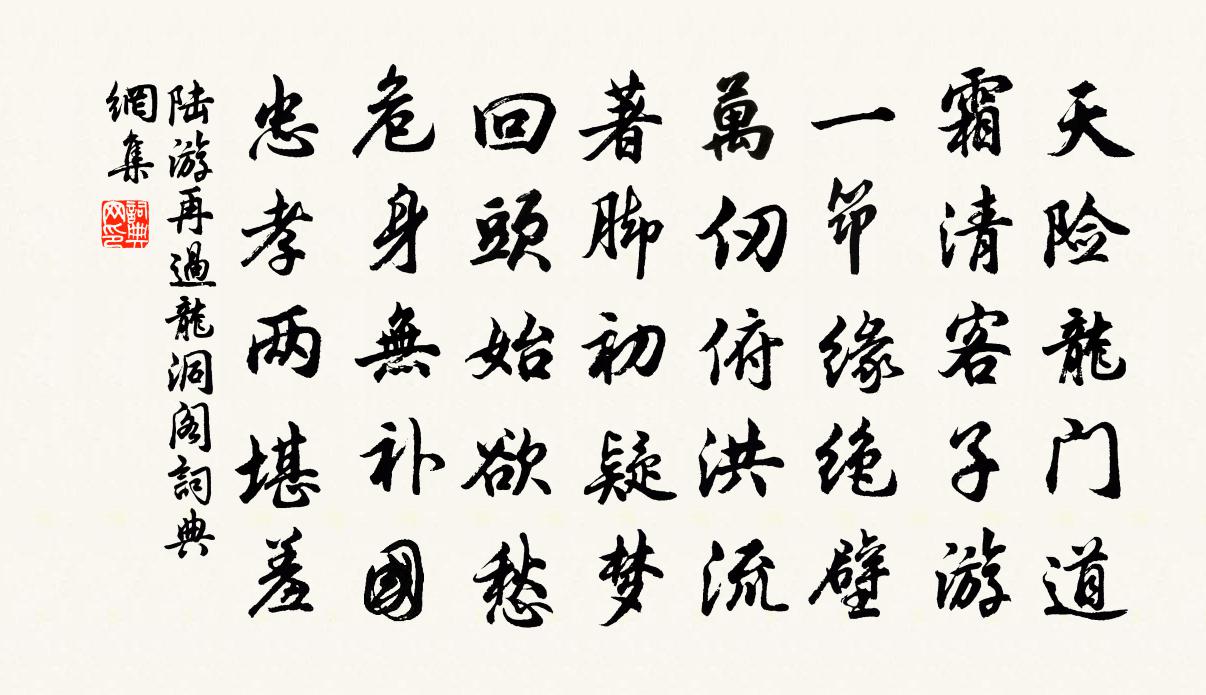 天险龍门道
霜清客子游
一笻缘绝壁
萬仞俯洪流
著脚初疑梦
回頭始欲愁
危身無补國
忠孝两堪羞
陆游再過龍洞阁詞典
網集
詞典网印